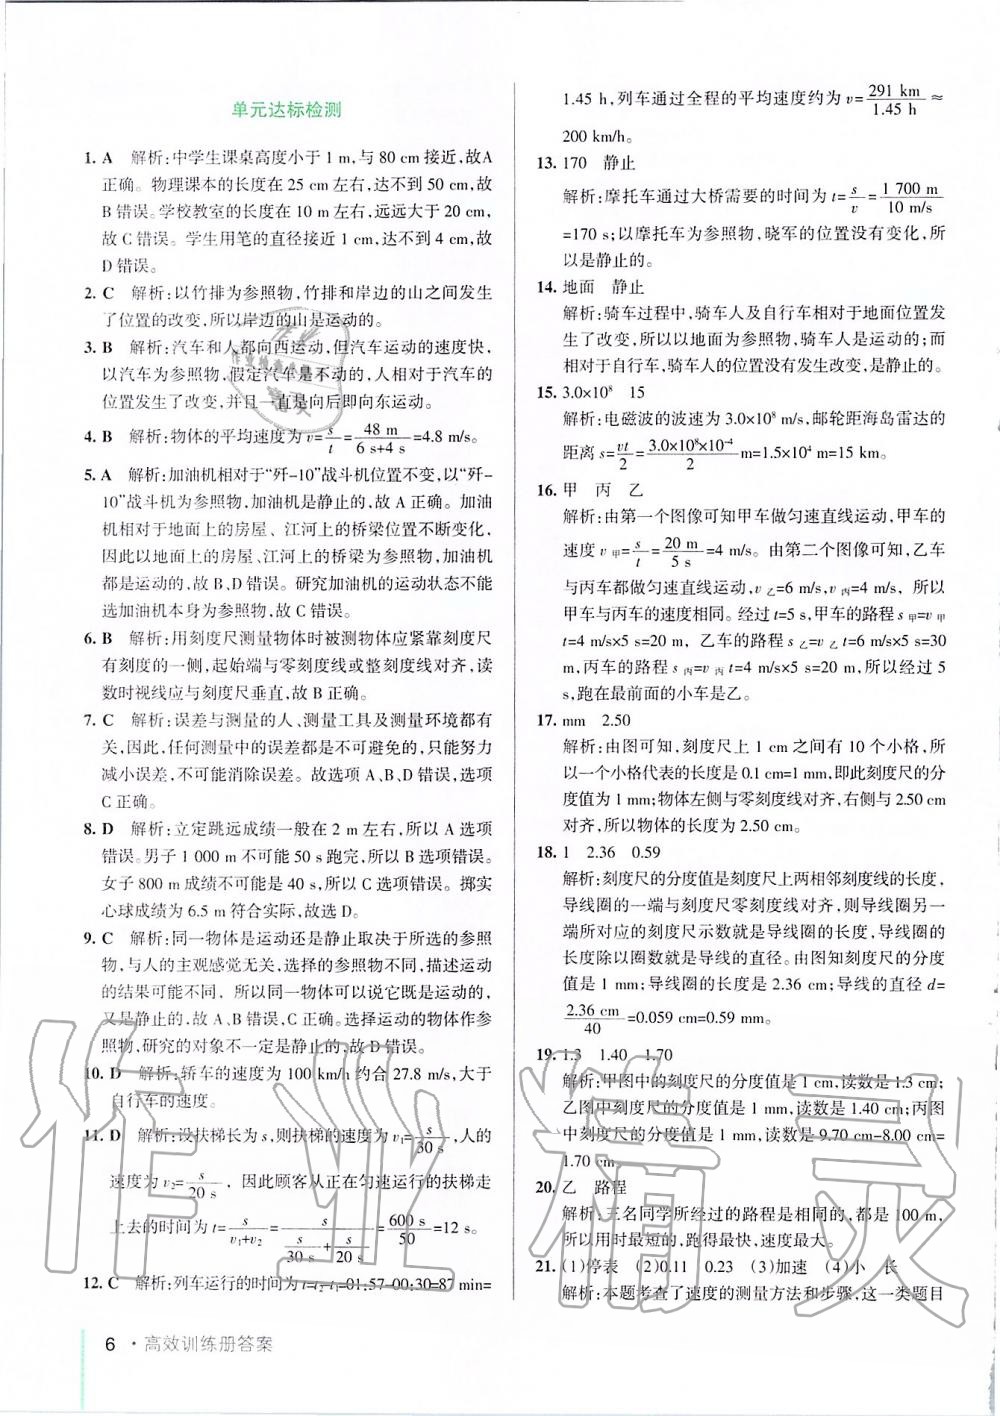 单元达标检测
1. A　解析:中学生课桌高度小于 1 m,与 80 cm 接近,故A
正确。物理课本的长度在 25 cm 左右,达不到 50 cm,故
B 错误。学校教室的长度在 10 m 左右,远远大于 20 cm,
故 C 错误。学生用笔的直径接近 1 cm,达不到 4 cm,故
D 错误。
2. C　解析:以竹排为参照物,竹排和岸边的山之间发生
了位置的改变,所以岸边的山是运动的。
3. B　解析:汽车和人都向西运动,但汽车运动的速度快,
以汽车为参照物,假定汽车是不动的,人相对于汽车的
位置发生了改变,并且一直是向后即向东运动。
4. B　解析:物体的平均速度为 v=s/t=48 m/(6 s+4 s)=4.8 m/s。
5. A　解析:加油机相对于“歼-10”战斗机位置不变,以“歼-
10”战斗机为参照物,加油机是静止的,故 A 正确。加油
机相对于地面上的房屋、江河上的桥梁位置不断变化,
因此以地面上的房屋、江河上的桥梁为参照物,加油机
都是运动的,故 B、D 错误。研究加油机的运动状态不能
选加油机本身为参照物,故 C 错误。
6. B　解析:用刻度尺测量物体时被测物体应紧靠刻度尺
有刻度的一侧,起始端与零刻度线或整刻度线对齐,读
数时视线应与刻度尺垂直,故 B 正确。
7. C　解析:误差与测量的人、测量工具及测量环境都有
关,因此,任何测量中的误差都是不可避免的,只能努力
减小误差,不可能消除误差。故选项 A、B、D 错误,选项
C 正确。
8. D　解析:立定跳远成绩一般在 2 m 左右,所以 A 选项
错误。男子 1 000 m 不可能 50 s 跑完,所以 B 选项错误。
女子 800 m 成绩不可能是 40 s,所以 C 选项错误。掷实
心球成绩为 6.5 m 符合实际,故选 D。
9. C　解析:同一物体是运动还是静止取决于所选的参照
物,与人的主观感觉无关,选择的参照物不同,描述运动
的结果可能不同，所以同一物体可以说它既是运动的,
又是静止的,故 A、B 错误、C 正确。选择运动的物体作参
照物,研究的对象不一定是静止的,故 D 错误。
10. D　解析:轿车的速度为 100 km/h 约合 27.8 m/s,大于
自行车的速度。
11. D　解析:设扶梯长为 s,则扶梯的速度为 v₁=s/30 s,人的
速度为 v₂=s/20 s，因此顾客从正在匀速运行的扶梯走
上去的时间为 t=s/(v₁+v₂)=s/(s/30 s+s/20 s)=600 s/50=12 s。
12. C　解析:列车运行的时间为 t=t₂-t₁=01:57-00:30=87 min=
1.45 h,列车通过全程的平均速度约为 v=291 km/1.45 h≈
200 km/h。
13. 170　静止
解析:摩托车通过大桥需要的时间为 t=s/v=1 700 m/10 m/s
=170 s;以摩托车为参照物,晓军的位置没有变化,所
以是静止的。
14. 地面　静止
解析:骑车过程中,骑车人及自行车相对于地面位置发
生了改变,所以以地面为参照物,骑车人是运动的;而
相对于自行车,骑车人的位置没有发生改变,是静止的。
15. 3.0×10⁸　15
解析:电磁波的波速为 3.0×10⁸ m/s,邮轮距海岛雷达的
距离 s=vt/2=3.0×10⁸×10⁻⁴/2 m=1.5×10⁴ m=15 km。
16. 甲　丙　乙
解析:由第一个图像可知甲车做匀速直线运动,甲车的
速度 v甲=s/t=20 m/5 s=4 m/s。由第二个图像可知,乙车
与丙车都做匀速直线运动,v乙=6 m/s,v丙=4 m/s，所以
甲车与丙车的速度相同。经过 t=5 s,甲车的路程 s甲=v甲
t=4 m/s×5 s=20 m，乙车的路程 s乙=v乙 t=6 m/s×5 s=30
m,丙车的路程 s丙=v丙 t=4 m/s×5 s=20 m,所以经过 5
s,跑在最前面的小车是乙。
17. mm　2.50
解析:由图可知,刻度尺上 1 cm 之间有 10 个小格,所
以一个小格代表的长度是 0.1 cm=1 mm,即此刻度尺的分
度值为 1 mm;物体左侧与零刻度线对齐,右侧与 2.50 cm
对齐,所以物体的长度为 2.50 cm。
18. 1　2.36　0.59
解析:刻度尺的分度值是刻度尺上两相邻刻度线的长度,
导线圈的一端与刻度尺零刻度线对齐,则导线圈的另一
端所对应的刻度尺示数就是导线圈的长度,导线圈的
长度除以圈数就是导线的直径。由图知刻度尺的分度
值是 1 mm;导线圈的长度是 2.36 cm;导线的直径 d=
2.36 cm/40=0.059 cm=0.59 mm。
19. 1.3　1.40　1.70
解析:甲图中的刻度尺的分度值是 1 cm,读数是 1.3 cm;
乙图中刻度尺的分度值是 1 mm，读数是 1.40 cm;丙图
中刻度尺的分度值是 1 mm,读数是 9.70 cm-8.00 cm=
1.70 cm。
20. 乙　路程
解析:三名同学所经过的路程是相等的,都是 100 m,
所以用时最短的,跑得最快,速度最大。
21. (1)停表　(2)0.11　0.23　(3)加速　(4)小　长
解析:本题考查了速度的测量方法和步骤,这一类题目
6 · 高效训练册答案
作业精灵